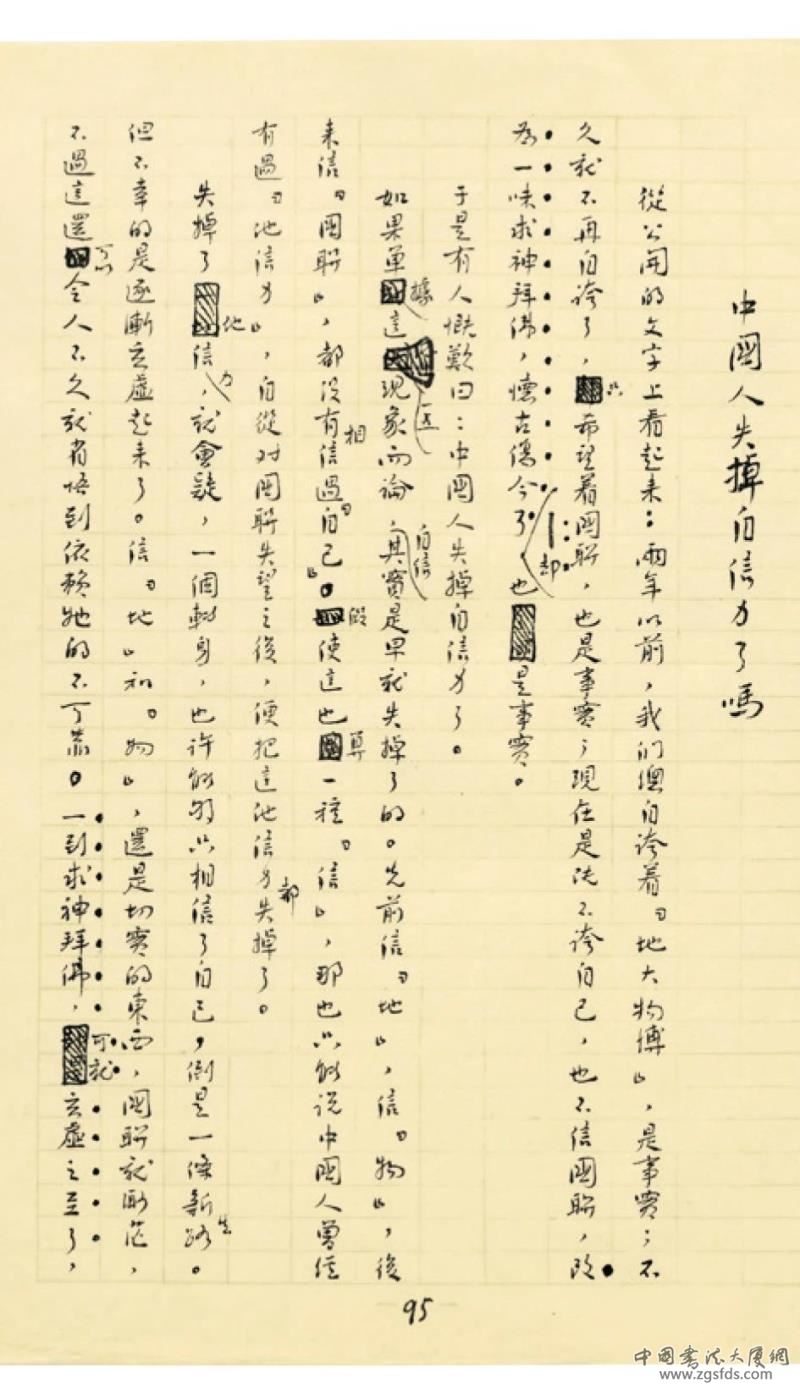 中國人失掉自信力了嗎
從公開的文字上看起來：兩年以前，我們總自誇着『地大物博』，是事實；不
久就不再自誇了，只希望着國聯，也是事實；現在是既不誇自己，也不信國聯，改
為一味求神拜佛，懷古傷今了，却也是事實。
于是有人慨歎曰：中國人失掉自信力了。
如果單據這一点現象而論，自信其實是早就失掉了的。先前信『地』，信『物』，後
來信『國聯』，都沒有相信過『自己』。假使這也算一種『信』，那也只能說中國人曾經
有過『他信力』，自從对國聯失望之後，便把這他信力都失掉了。
失掉了他信力，就會疑，一個轉身，也許能够只相信了自己，倒是一條新生路。
但不幸的是逐漸玄虛起來了。信『地』和『物』，還是切實的東西，國聯就渺茫，
不過這還可以令人不久就省悟到依賴牠的不可靠。一到求神拜佛，可就玄虛之至了，
95
中國書法大廈網
www.zgsfds.com